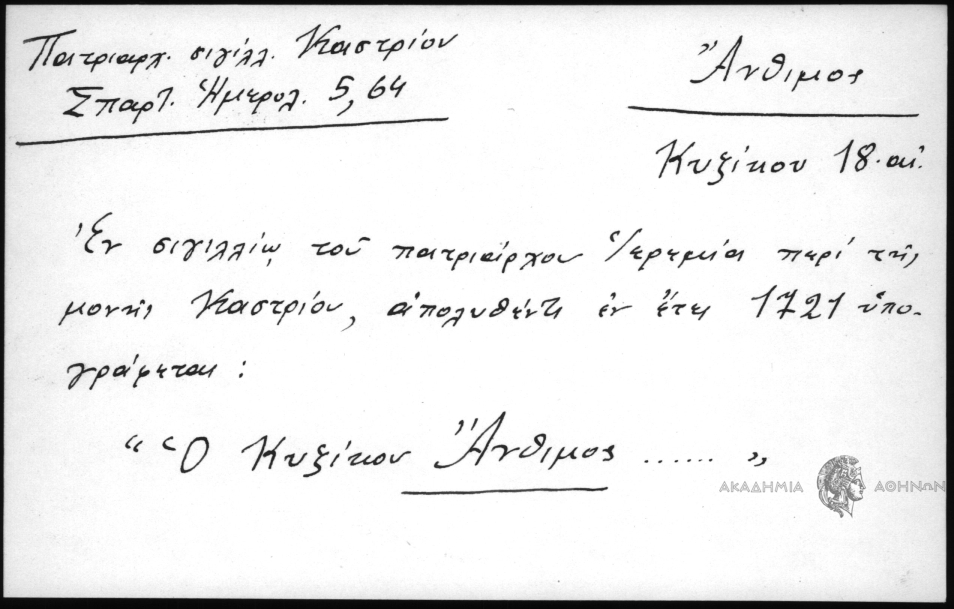 Πατριαρχ. σιγίλλ. Καστρίου
Σπαρτ. Ἡμερολ. 5,64
Ἄνθιμος
Κυζίκου 18. αἰ.
Ἐν σιγιλλίῳ τοῦ πατριάρχου Ἱερεμία περὶ τῆς
μονῆς Καστρίου, ἀπολυθέντι ἐν ἔτει 1721 ὑπο-
γράφεται :
“ Ὁ Κυζίκου Ἄνθιμος ...... „
ΑΚΑΔΗΜΙΑ ΑΘΗΝΩΝ